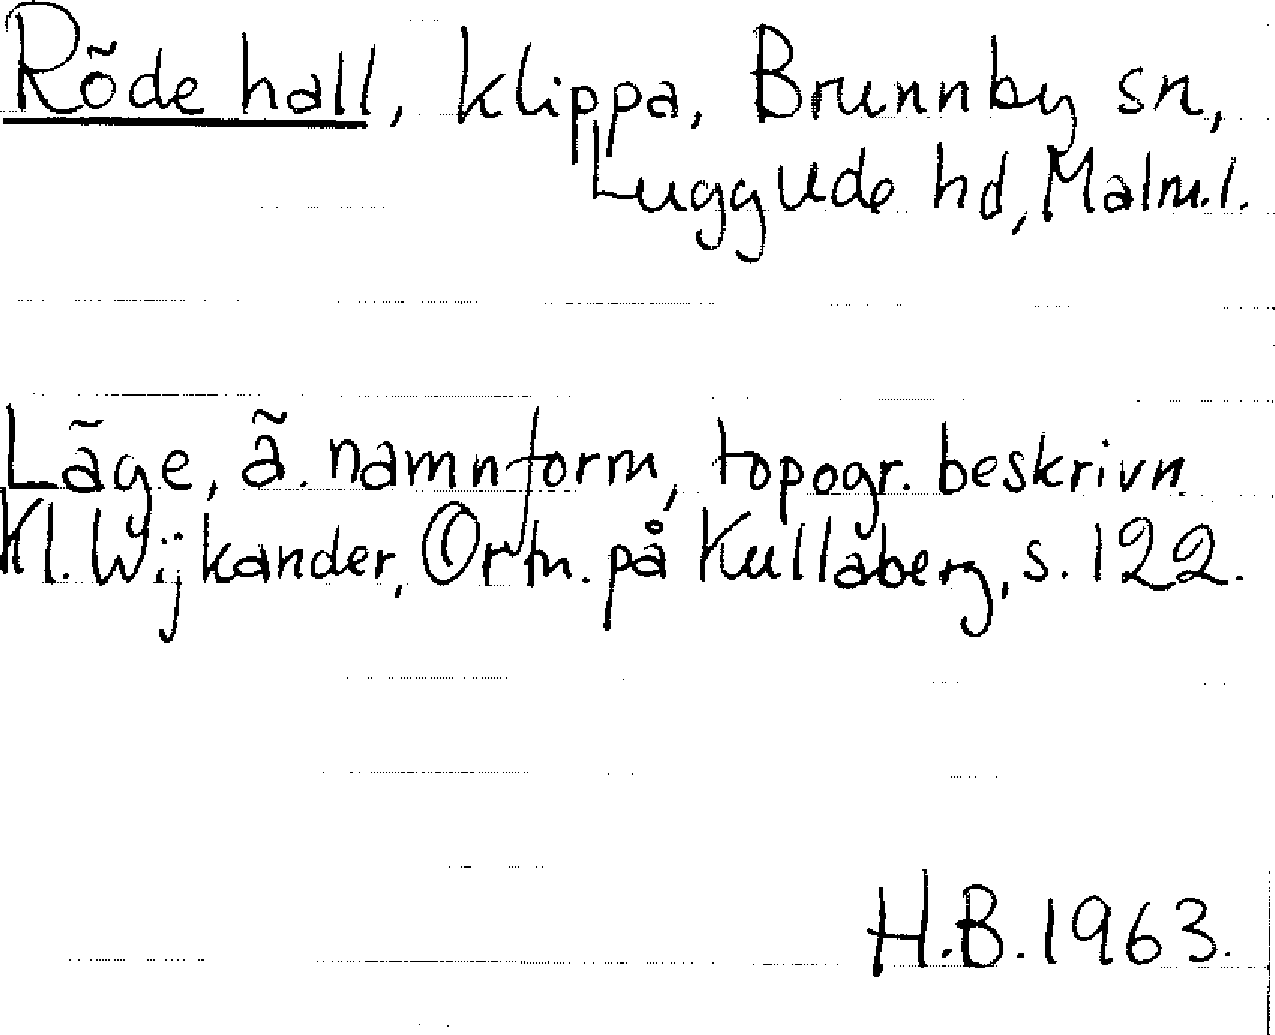 Röde hall, klippa, Brunnby sn,
Luggude hd, Malm.l.
Läge, ä. namnform, topogr. beskrivn.
Kl. Wijkander, Ortn. på Kullaberg, s. 122.
H.B. 1963.